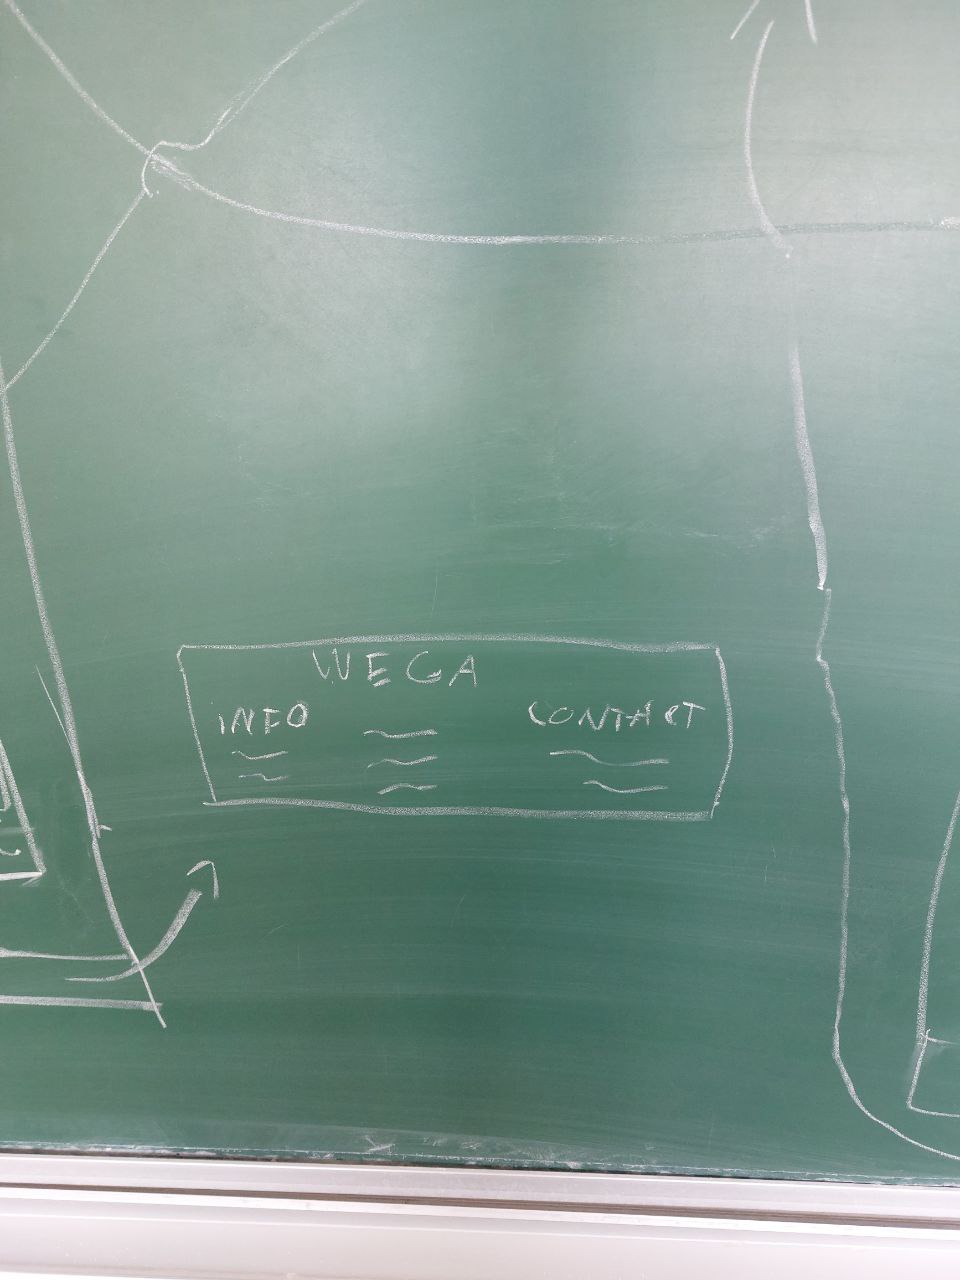 WEGA
INFO
CONTACT